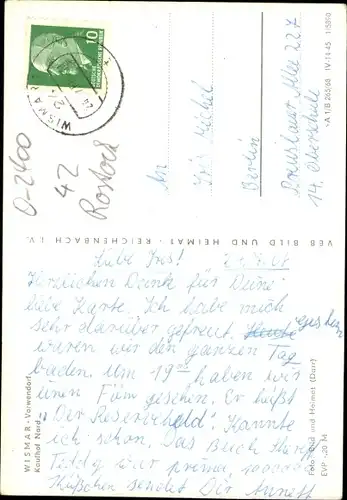 10
DEUTSCHE DEMOKRATISCHE REPUBLIK
WISMAR
O-2400
42
Rostock
An
Iris Michel
Berlin
Prenzlauer Allee 227
14. Oberschule
A 1/B 265/68 IV-14-45
VEB BILD UND HEIMAT · REICHENBACH I. V.
Liebe Iris!
Herzlichen Dank für Deine
liebe Karte. Ich habe mich
sehr darüber gefreut. Heute gestern
waren wir den ganzen Tag
baden. Um 19 00 haben wir
einen Film gesehen. Er hieß
"Der Reserveheld". Kannte
ich schon. Das Buch
Teddy war prima,
Küßchen sendet Dir Annett
WISMAR-Vorwendorf
Kaufhof Nord
Foto: Bild und Heimat (Darr)
EVP